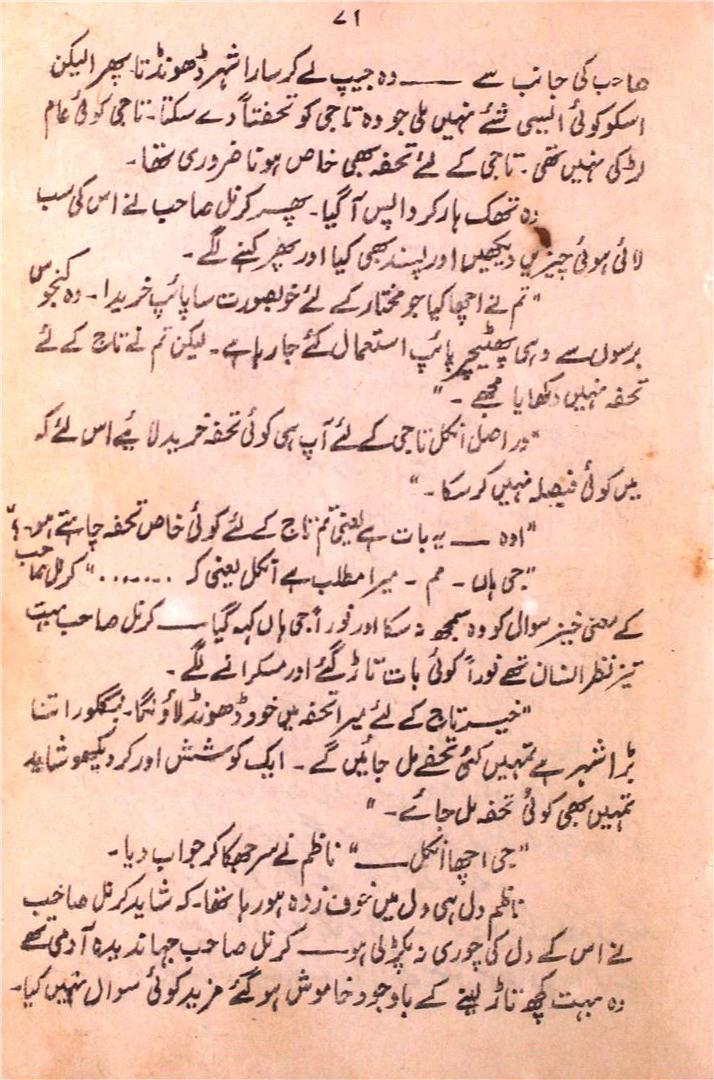 ۷۱
صاحب کی جانب سے ــــ وہ جیپ لے کر سارا شہر ڈھونڈتا پھرا لیکن
اسکو کوئی ایسی شئے نہیں ملی جو وہ تاجی کو تحفتاً دے سکتا۔ تاجی کوئی عام
لڑکی نہیں تھی۔ تاجی کے لئے تحفہ بھی خاص ہونا ضروری تھا۔
وہ تھک ہار کر واپس آگیا۔ پھر کرنل صاحب نے اس کی سب
لائی ہوئی چیزیں دیکھیں اور پسند بھی کیا اور پھر کہنے لگے۔
"تم نے اچھا کیا جو مختار کے لئے خوبصورت سا پائپ خریدا۔ وہ کنجوس
برسوں سے وہی پھٹیچر پائپ استعمال کئے جا رہا ہے۔ لیکن تم نے تاج کے لئے
تحفہ نہیں دکھایا مجھے۔"
"دراصل انکل تاجی کے لئے آپ ہی کوئی تحفہ خرید لائیے اس لئے کہ
میں کوئی فیصلہ نہیں کر سکا۔"
"اوہ ــــ یہ بات ہے یعنی تم تاج کے لئے کوئی خاص تحفہ چاہتے ہو۔؟"
"جی ہاں ۔ مم ۔ میرا مطلب ہے انکل یعنی کہ ......." کرنل صاحب
کے معنی خیز سوال کو وہ سمجھ نہ سکا اور فوراً جی ہاں کہہ گیا ــــ کرنل صاحب بہت
تیز نظر انسان تھے فوراً کوئی بات تاڑ گئے اور مسکرانے لگے۔
"خیر تاج کے لئے میرا تحفہ میں خود ڈھونڈ لاؤنگا۔ بنگلور اتنا
بڑا شہر ہے تمہیں کئی تحفے مل جائیں گے۔ ایک کوشش اور کر دیکھو شاید
تمہیں بھی کوئی تحفہ مل جائے۔"
"جی اچھا انکل ــــ" ناظم نے سر جھکا کر جواب دیا۔
ناظم دل ہی دل میں خوف زدہ ہو رہا تھا۔ کہ شاید کرنل صاحب
نے اس کے دل کی چوری نہ پکڑ لی ہو ــــ کرنل صاحب جہاندیدہ آدمی تھے
وہ بہت کچھ تاڑ لینے کے باوجود خاموش ہو گئے مزید کوئی سوال نہیں کیا۔